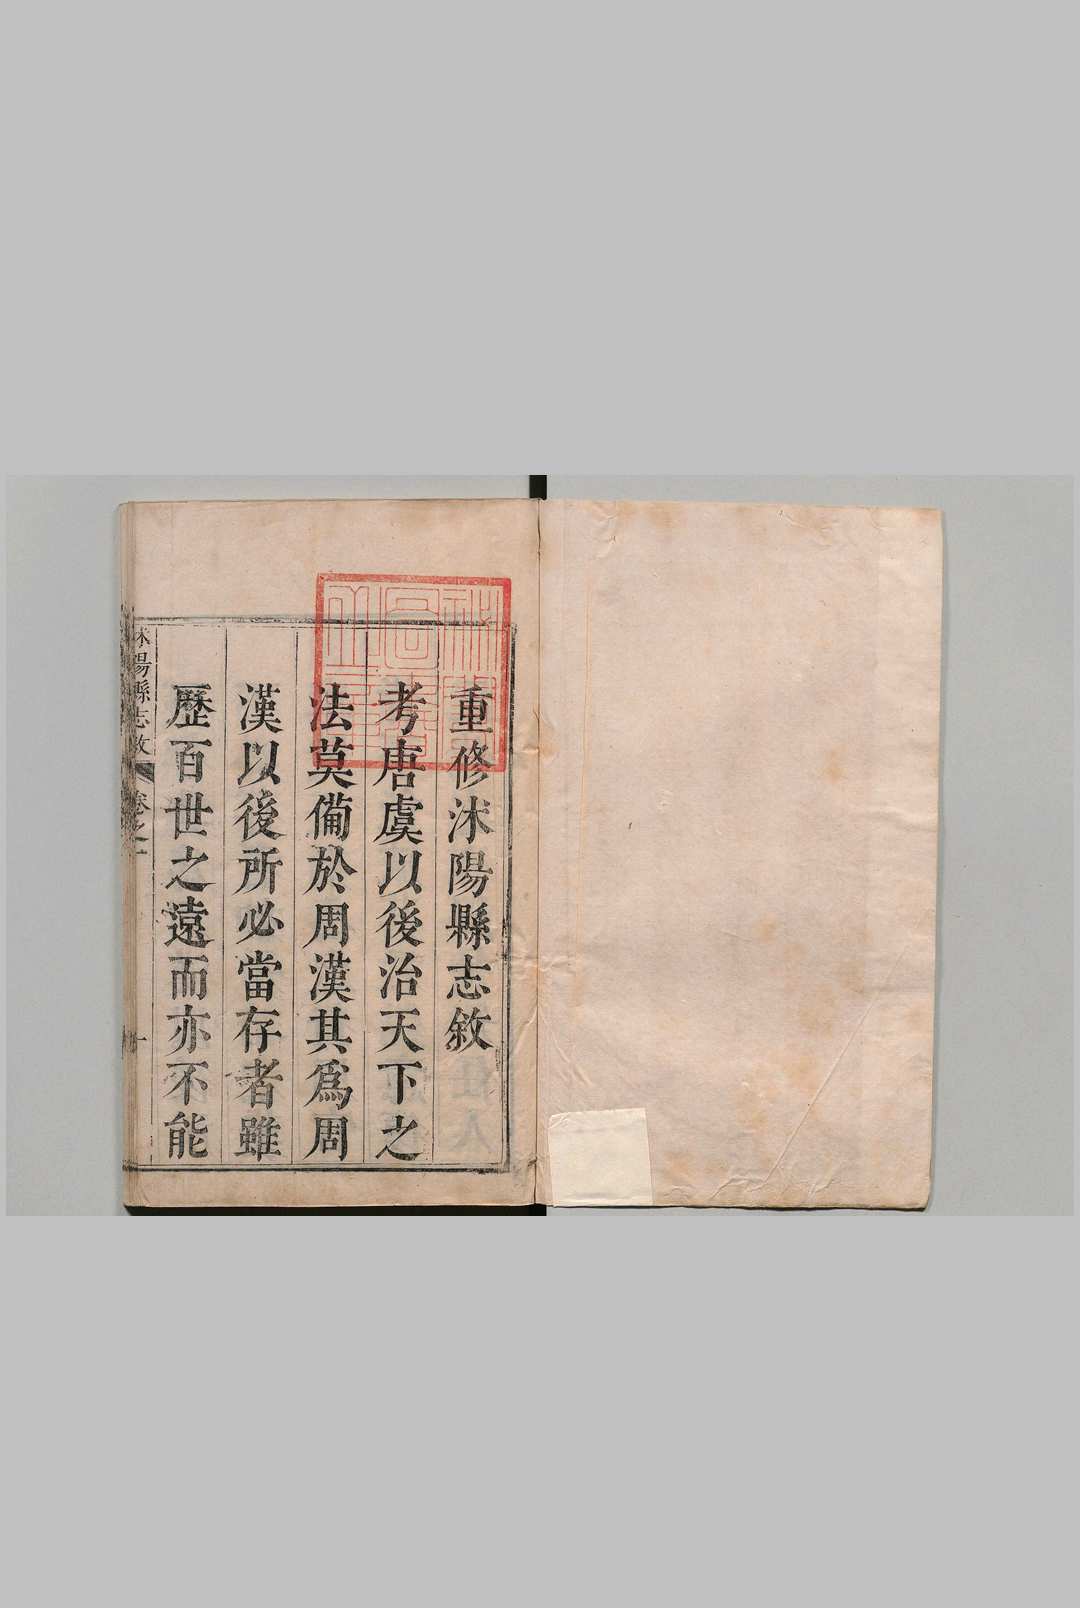 重修沭陽縣志敘
考唐虞以後治天下之
法莫備於周漢其爲周
漢以後所必當存者雖
歷百世之遠而亦不能
沭陽縣志敘 卷之一
一